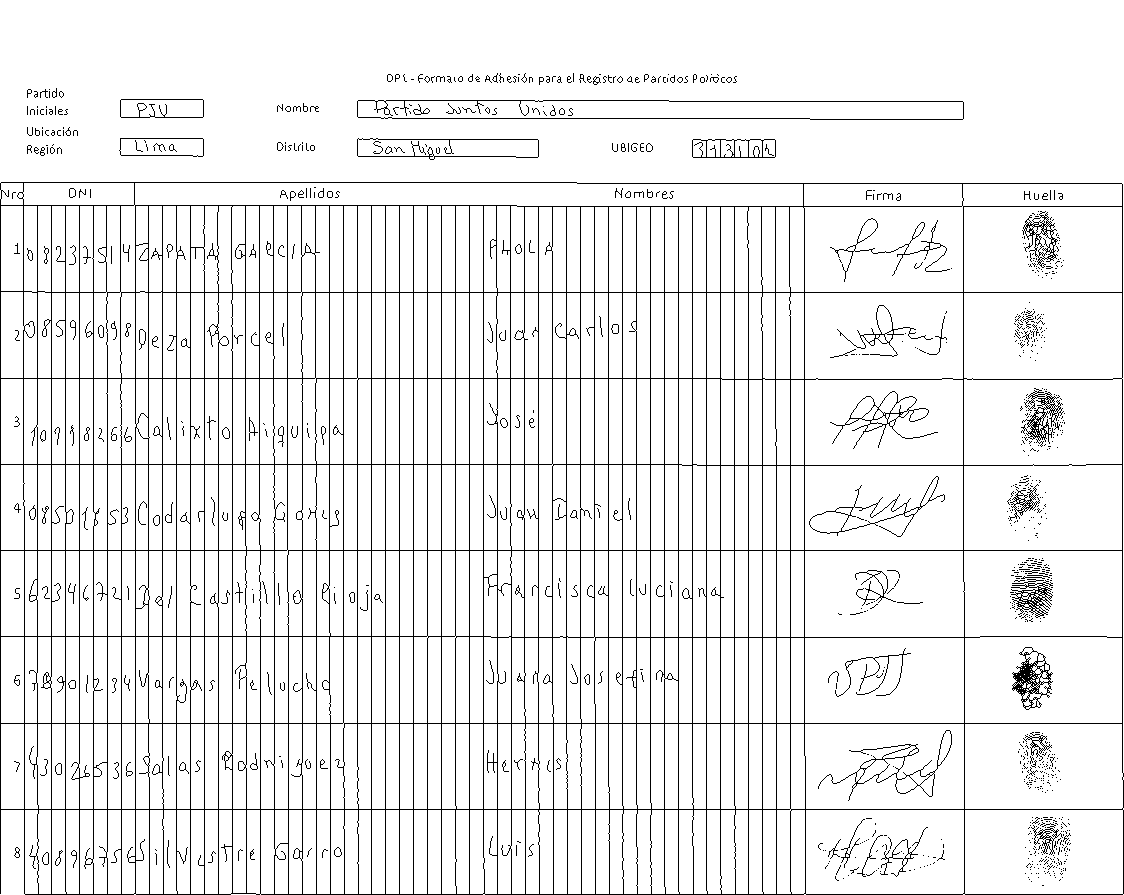 DP1 - Formato de Adhesión para el Registro de Partidos Políticos
Partido
Iniciales PJU Nombre Partido Juntos Unidos
Ubicación
Región Lima Distrito San Miguel UBIGEO
Nro DNI Apellidos Nombres Firma Huella
1 08237514 ZAPATA GARCIA PAOLA
2 08596098 Deza Porcel Juan Carlos
3 10998266 Calixto Aiquipa José
4 08501853 Codarlupo Gomes Juan Daniel
5 62346721 Del Castilllo Rioja Francisca Luciana
6 78901234 Vargas Pelucha Juana Josefina
7 43026536 Salas Rodriguez Hermes
8 40896756 Silvestre Garro Luis